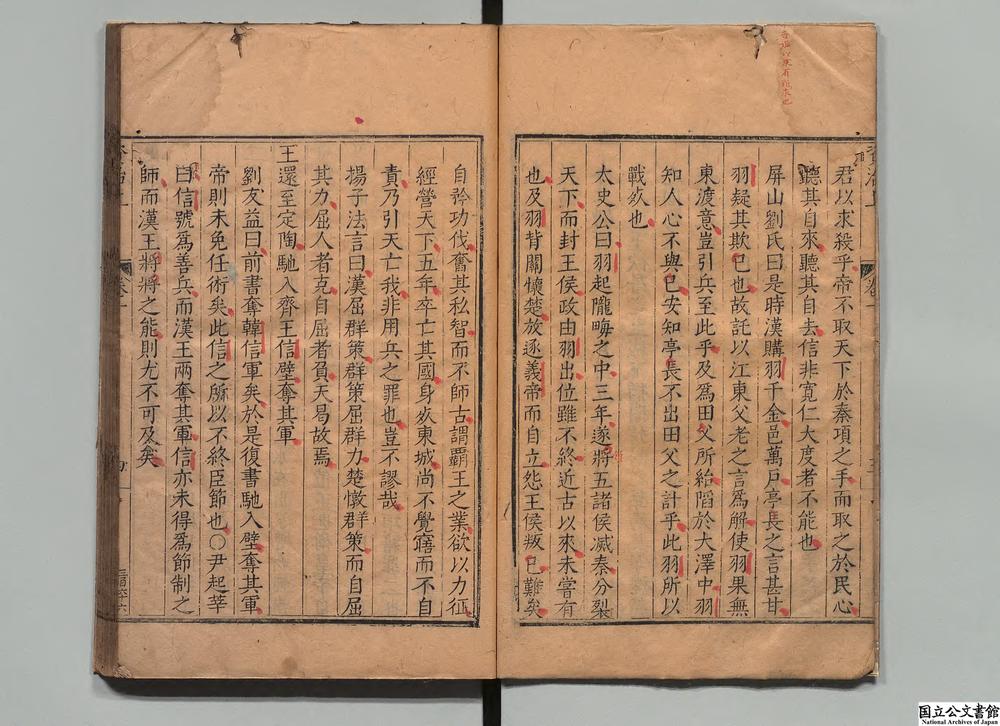 君以求殺乎帝不取天下於秦項之手而取之於民心
聽其自來聽其自去信非寬仁大度者不能也
屏山劉氏曰是時漢購羽千金邑萬戶亭長之言甚甘
羽疑其欺已也故託以江東父老之言為解使羽果無
東渡意豈引兵至此乎及為田父所紿陷於大澤中羽
知人心不與已安知亭長不出田父之計乎此羽所以
戰死也
太史公曰羽起隴畮之中三年遂將五諸侯滅秦分裂
天下而封王侯政由羽出位雖不終近古以來未嘗有
也及羽背關懷楚放逐義帝而自立怨王侯叛已難矣
自矜功伐奮其私智而不師古謂覇王之業欲以力征
經營天下五年卒亡其國身死東城尚不覺寤而不自
責乃引天亡我非用兵之罪也豈不謬哉
揚子法言曰漢屈群策群策屈群力楚憞群策而自屈
其力屈人者克自屈者負天曷故焉
王還至定陶馳入齊王信壁奪其軍
劉友益曰前書奪韓信軍矣於是復書馳入壁奪其軍
帝則未免任術矣此信之所以不終臣節也○尹起莘
曰信號為善兵而漢王兩奪其軍信亦未得為節制之
師而漢王將將之能則尤不可及矣
国立公文書館
National Archives of Japan